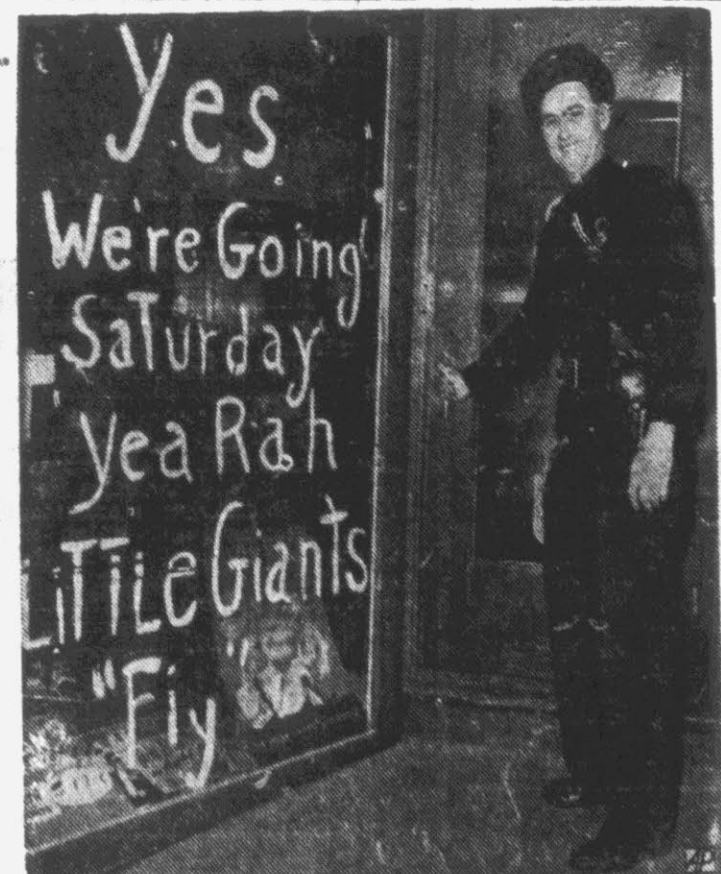 Yes
We're Going
Saturday
Yea Rah
LiTTLe Giants
"Fly"
AP